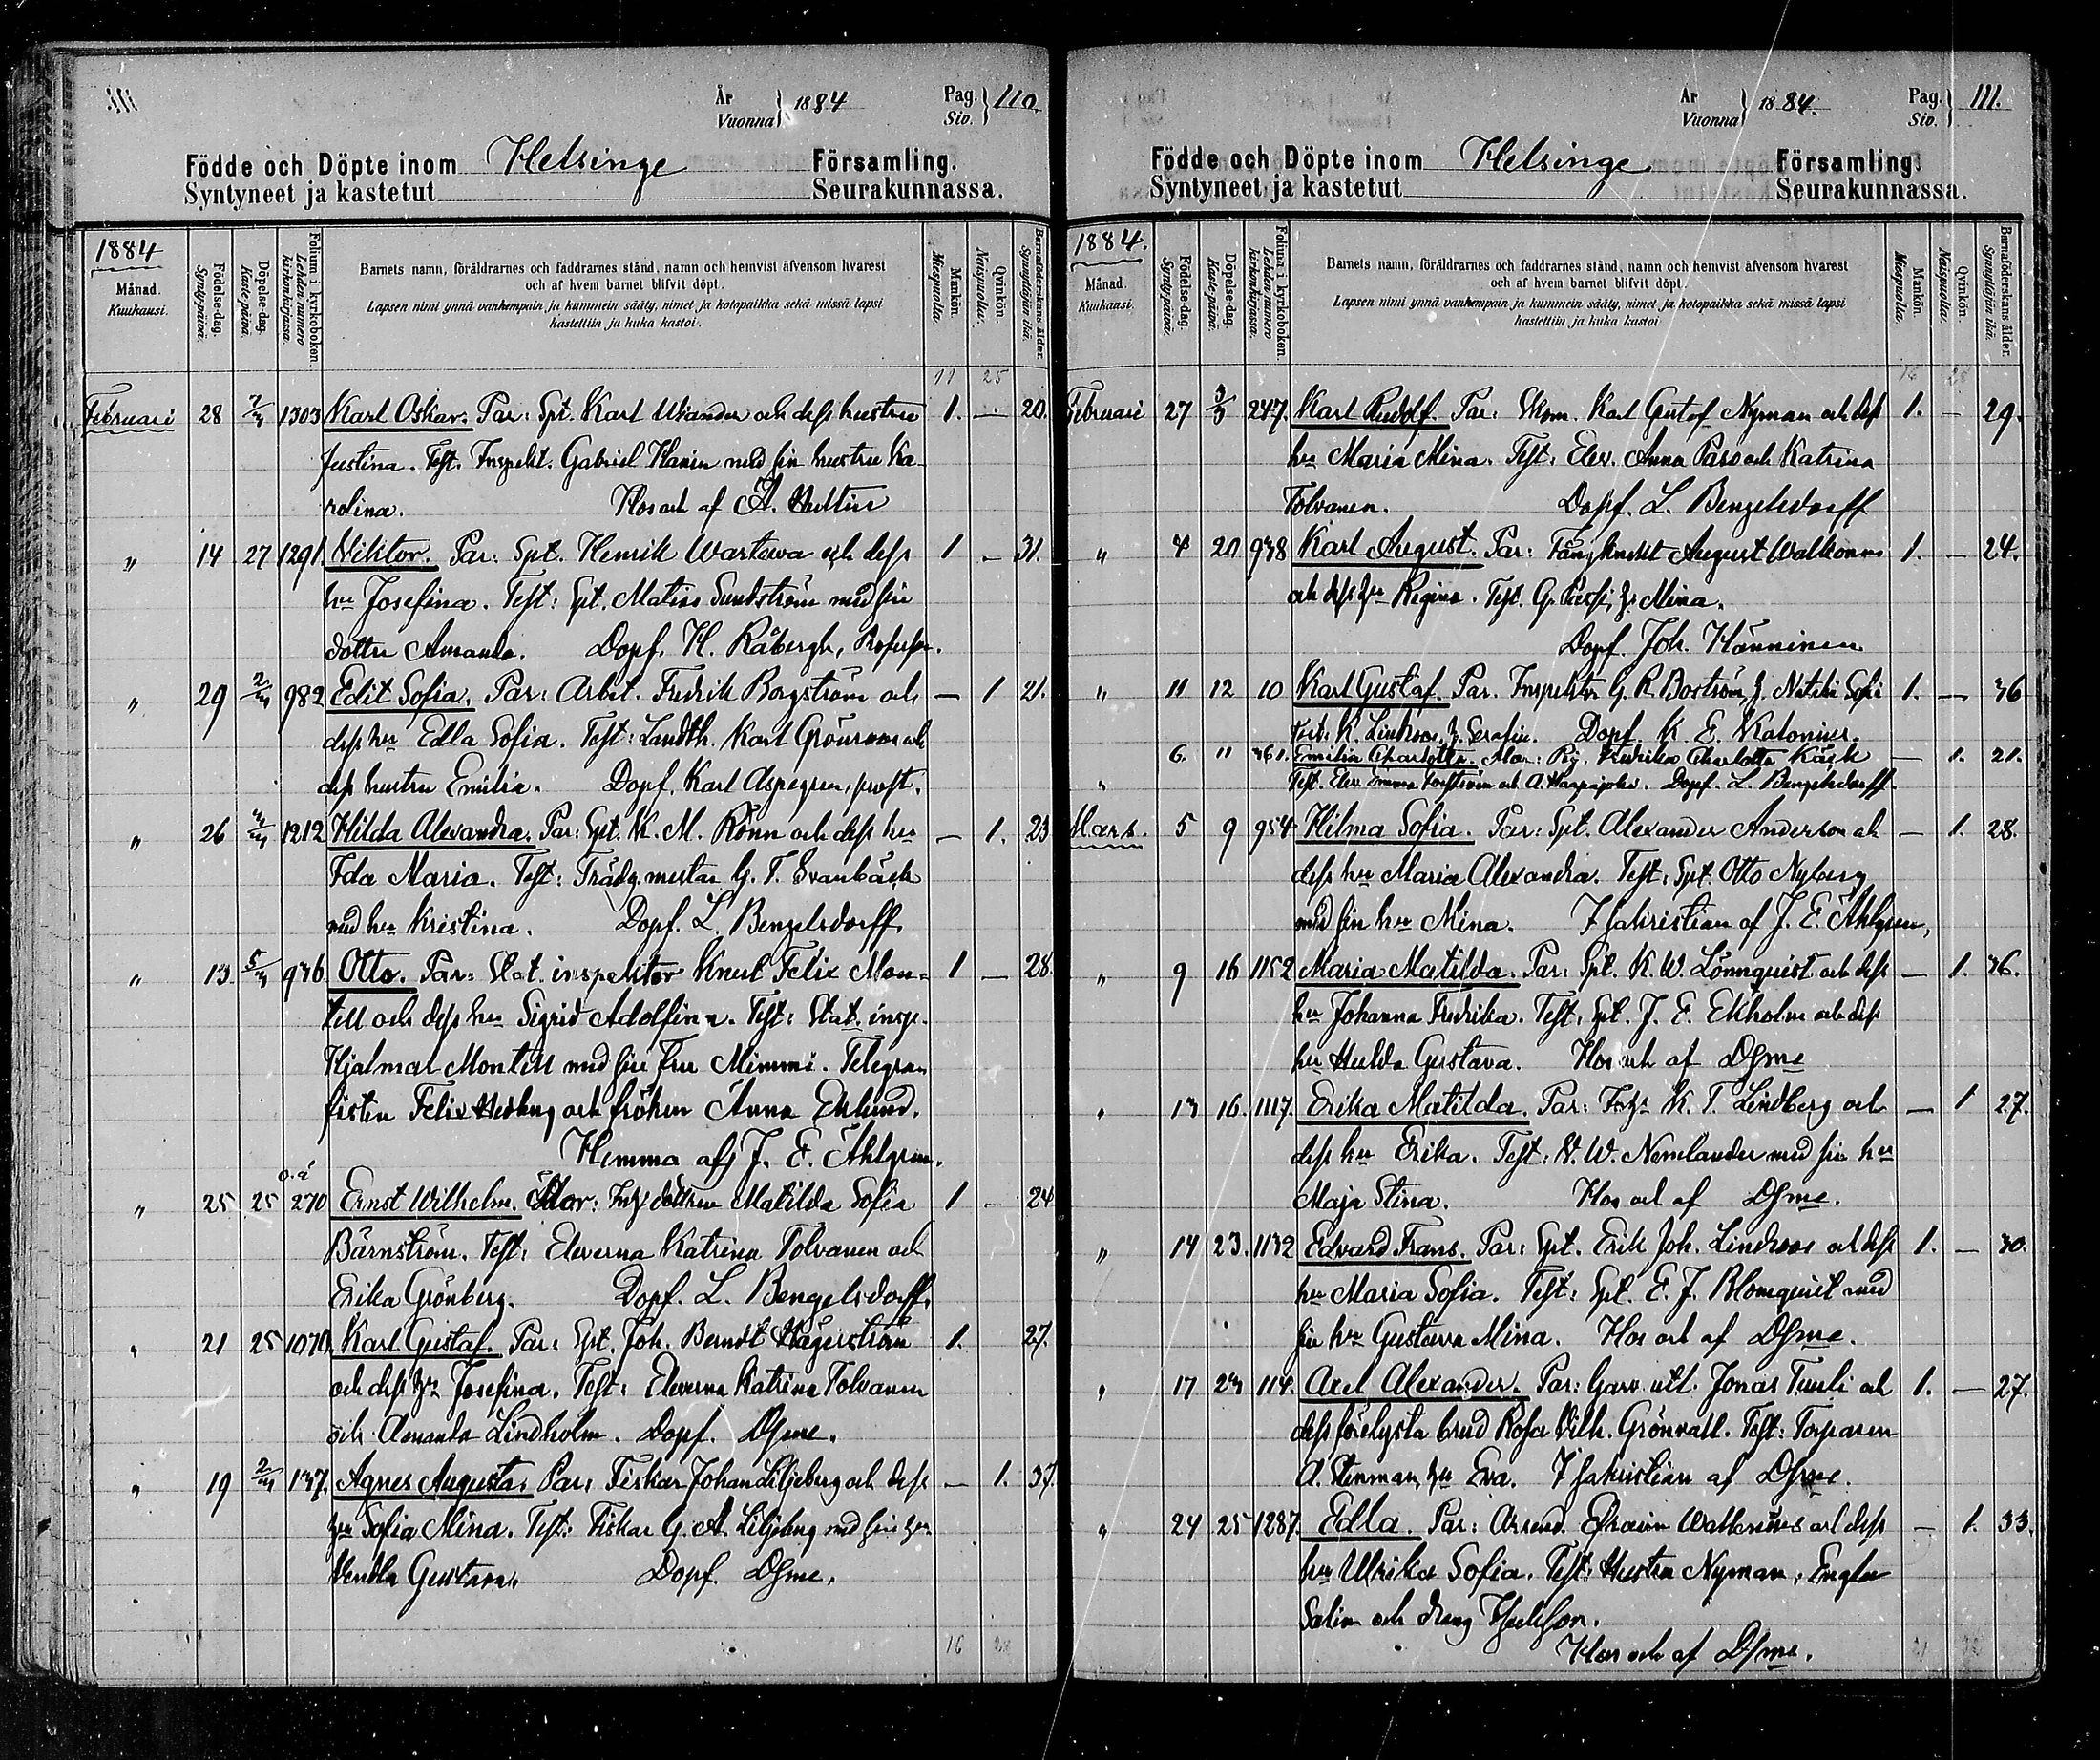 År Vuonna 1884 Pag. Siv. 110.
Födde och Döpte inom Helsinge Församling.
Syntyneet ja kastetut Seurakunnassa.
1884
Månad. Kuukausi.
Födelse-dag. Synty-päivä.
Döpelse-dag. Kaste-päivä.
Folium i kyrkoboken. Lehden numero kirkonkirjassa.
Barnets namn, föräldrarnes och faddrarnes stånd, namn och hemvist äfvensom hvarest
och af hvem barnet blifvit döpt.
Lapsen nimi ynnä vanhempain ja kummein sääty, nimet ja kotopaikka sekä missä lapsi
kastettiin ja kuka kastoi.
Mankön. Miespuolia.
Qvinkön. Naispuolia.
Barnaföderskans ålder. Synnyttäjän ikä.
11 25
Februari 28 1303 Karl Oskar. Par: Spt. Karl Wikander och dess hustru 1. — 20.
Justina. Test. Inspekt. Gabriel Hanin med sin hustru Ka-
rolina. Hos och af A. Huttin
" 14 27 1291 Viktor. Par: Spt. Henrik Wartewa och dess 1 — 31.
hru Josefina. Test: Spt. Matias Sundström med sin
dotter Amanda. Dopf. H. Råbergh, Professor.
" 29 2/3 982 Edit Sofia. Par: Arbet. Fredrik Borgström och — 1 21.
dess hru Edla Sofia. Test: Landth. Karl Grönroos och
dess hustru Emilia. Dopf. Karl Aspegren, prost.
" 26 1212 Hilda Alexandra. Par: Spt. K. M. Rönn och dess hru — 1. 23
Ida Maria. Test: Trädg.mestar G. T. Svanbäck
med hru Kristina. Dopf. L. Bengelsdorff.
" 13. 5/3 936 Otto. Par: Stat. inspektor Knut Felix Mon- 1 — 28.
tell och dess hru Sigrid Adolfina. Test: Stat. insp.
Hjalmar Montell med sin fru Mimmi. Telegra-
fisten Felix Hedberg och fröken Anna Eklund.
Hemma af J. E. Åhlgren.
" 25 25 o.ä 270 Ernst Wilhelm. Mor: Matilda Sofia 1 — 24
Bärnström. Test: Eleverna Katrina Tolvanen och
Erika Grönberg. Dopf. L. Bengelsdorff.
" 21 25 1070 Karl Gustaf. Par: Spt. Joh. Berndt Hagerström 1. 27.
och dess hru Josefina. Test: Eleverna Katrina Tolvanen
och Amanda Lindholm. Dopf. Dsme.
" 19 2/3 137. Agnes Augusta. Par: Fiskar Johan Liljeberg och dess — 1. 37.
hru Sofia Mina. Test: Fiskar G. A. Liljeberg med sin hru
Vendla Gustava. Dopf. Dsme.
16
År Vuonna 1884. Pag. Siv. 111.
Födde och Döpte inom Helsinge Församling.
Syntyneet ja kastetut Seurakunnassa.
1884.
Månad. Kuukausi.
Födelse-dag. Synty-päivä.
Döpelse-dag. Kaste-päivä.
Folium i kyrkoboken. Lehden numero kirkonkirjassa.
Barnets namn, föräldrarnes och faddrarnes stånd, namn och hemvist äfvensom hvarest
och af hvem barnet blifvit döpt.
Lapsen nimi ynnä vanhempain ja kummein sääty, nimet ja kotopaikka sekä missä lapsi
kastettiin ja kuka kastoi.
Mankön. Miespuolia.
Qvinkön. Naispuolia.
Barnaföderskans ålder. Synnyttäjän ikä.
16
Februari 27 3/3 247. Karl Rudolf. Par: Skom. Karl Gustaf Nyman och dess 1. — 29.
hru Maria Mina. Test: Elev. Anna Paso och Katrina
Tolvanen. Dopf. L. Bengelsdorff
" 4 20 938 Karl August. Par: Fångknekt August Walkonen 1. — 24.
och dess hru Regina. Test. G. h. Mina.
Dopf. Joh. Hänninen
" 11 12 10 Karl Gustaf. Par. Inspektor G. R. Boström, h. Sofia 1. — 36
K. Lindroos, h. Serafin. Dopf. K. E. Kalonius.
" 6. 11 361. Emilia Charlotta. Mor: Pig. Fredrika Charlotta Käck — 1. 21.
Test. Elev. Emma och A. Haapajoki. Dopf. L. Bengelsdorff.
Mars. 5 9 954 Hilma Sofia. Par: Spt. Alexander Anderson och — 1. 28.
dess hru Maria Alexandra. Test: Spt. Otto Nyberg
med sin hru Mina. I sakristian af J. E. Åhlgren,
" 9 16 1152 Maria Matilda. Par: Spt. K. W. Lönnquist och dess — 1. 36.
hru Johanna Fredrika. Test: Spt. J. E. Ekholm och dess
hru Hulda Gustava. Hos och af Dsme
" 13 16. 1117. Erika Matilda. Par: K. T. Lindberg och — 1 27.
dess hru Erika. Test: W. Nemlander med sin hru
Maja Stina. Hos och af Dsme.
" 14 23. 1132 Edvard Frans. Par: Spt. Erik Joh. Lindroos och dess 1. — 30.
hru Maria Sofia. Test: Spt. E. J. Blomquist med
sin hru Gustava Mina. Hos och af Dsme.
" 17 23 114. Axel Alexander. Par: Garv. utl. Jonas Tuuli och 1. — 27.
dess förelysta brud Rosa Vilh. Grönvall. Test: Torparen
A. Stenman, hru Eva. I sakristian af Dsme.
" 24 25 1287. Edla. Par: Arrend. Efraim och dess — 1. 33.
hru Ulrika Sofia. Test: Hustru Nyman, Engla
Salin och dräng
Hos och af Dsme.